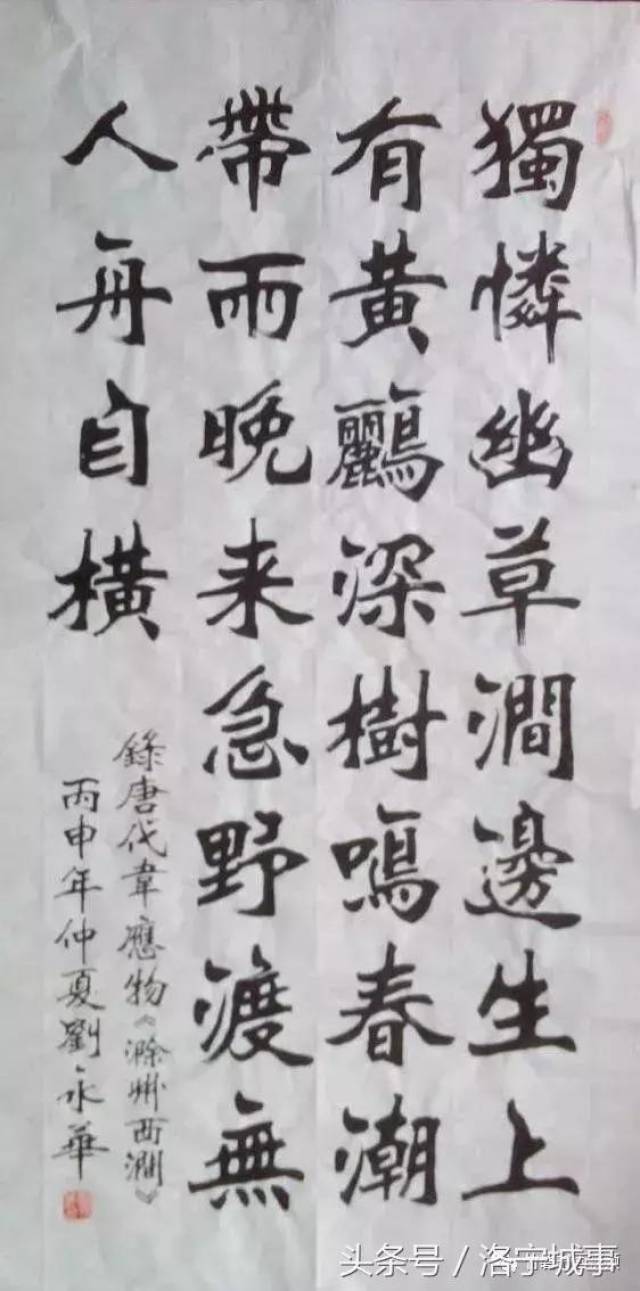 獨憐幽草澗邊生上
有黃鸝深樹鳴春潮
帶雨晚来急野渡無
人舟自橫
錄唐代韋應物《滁州西澗》
丙申年仲夏劉永華
头条号／洛宁城事